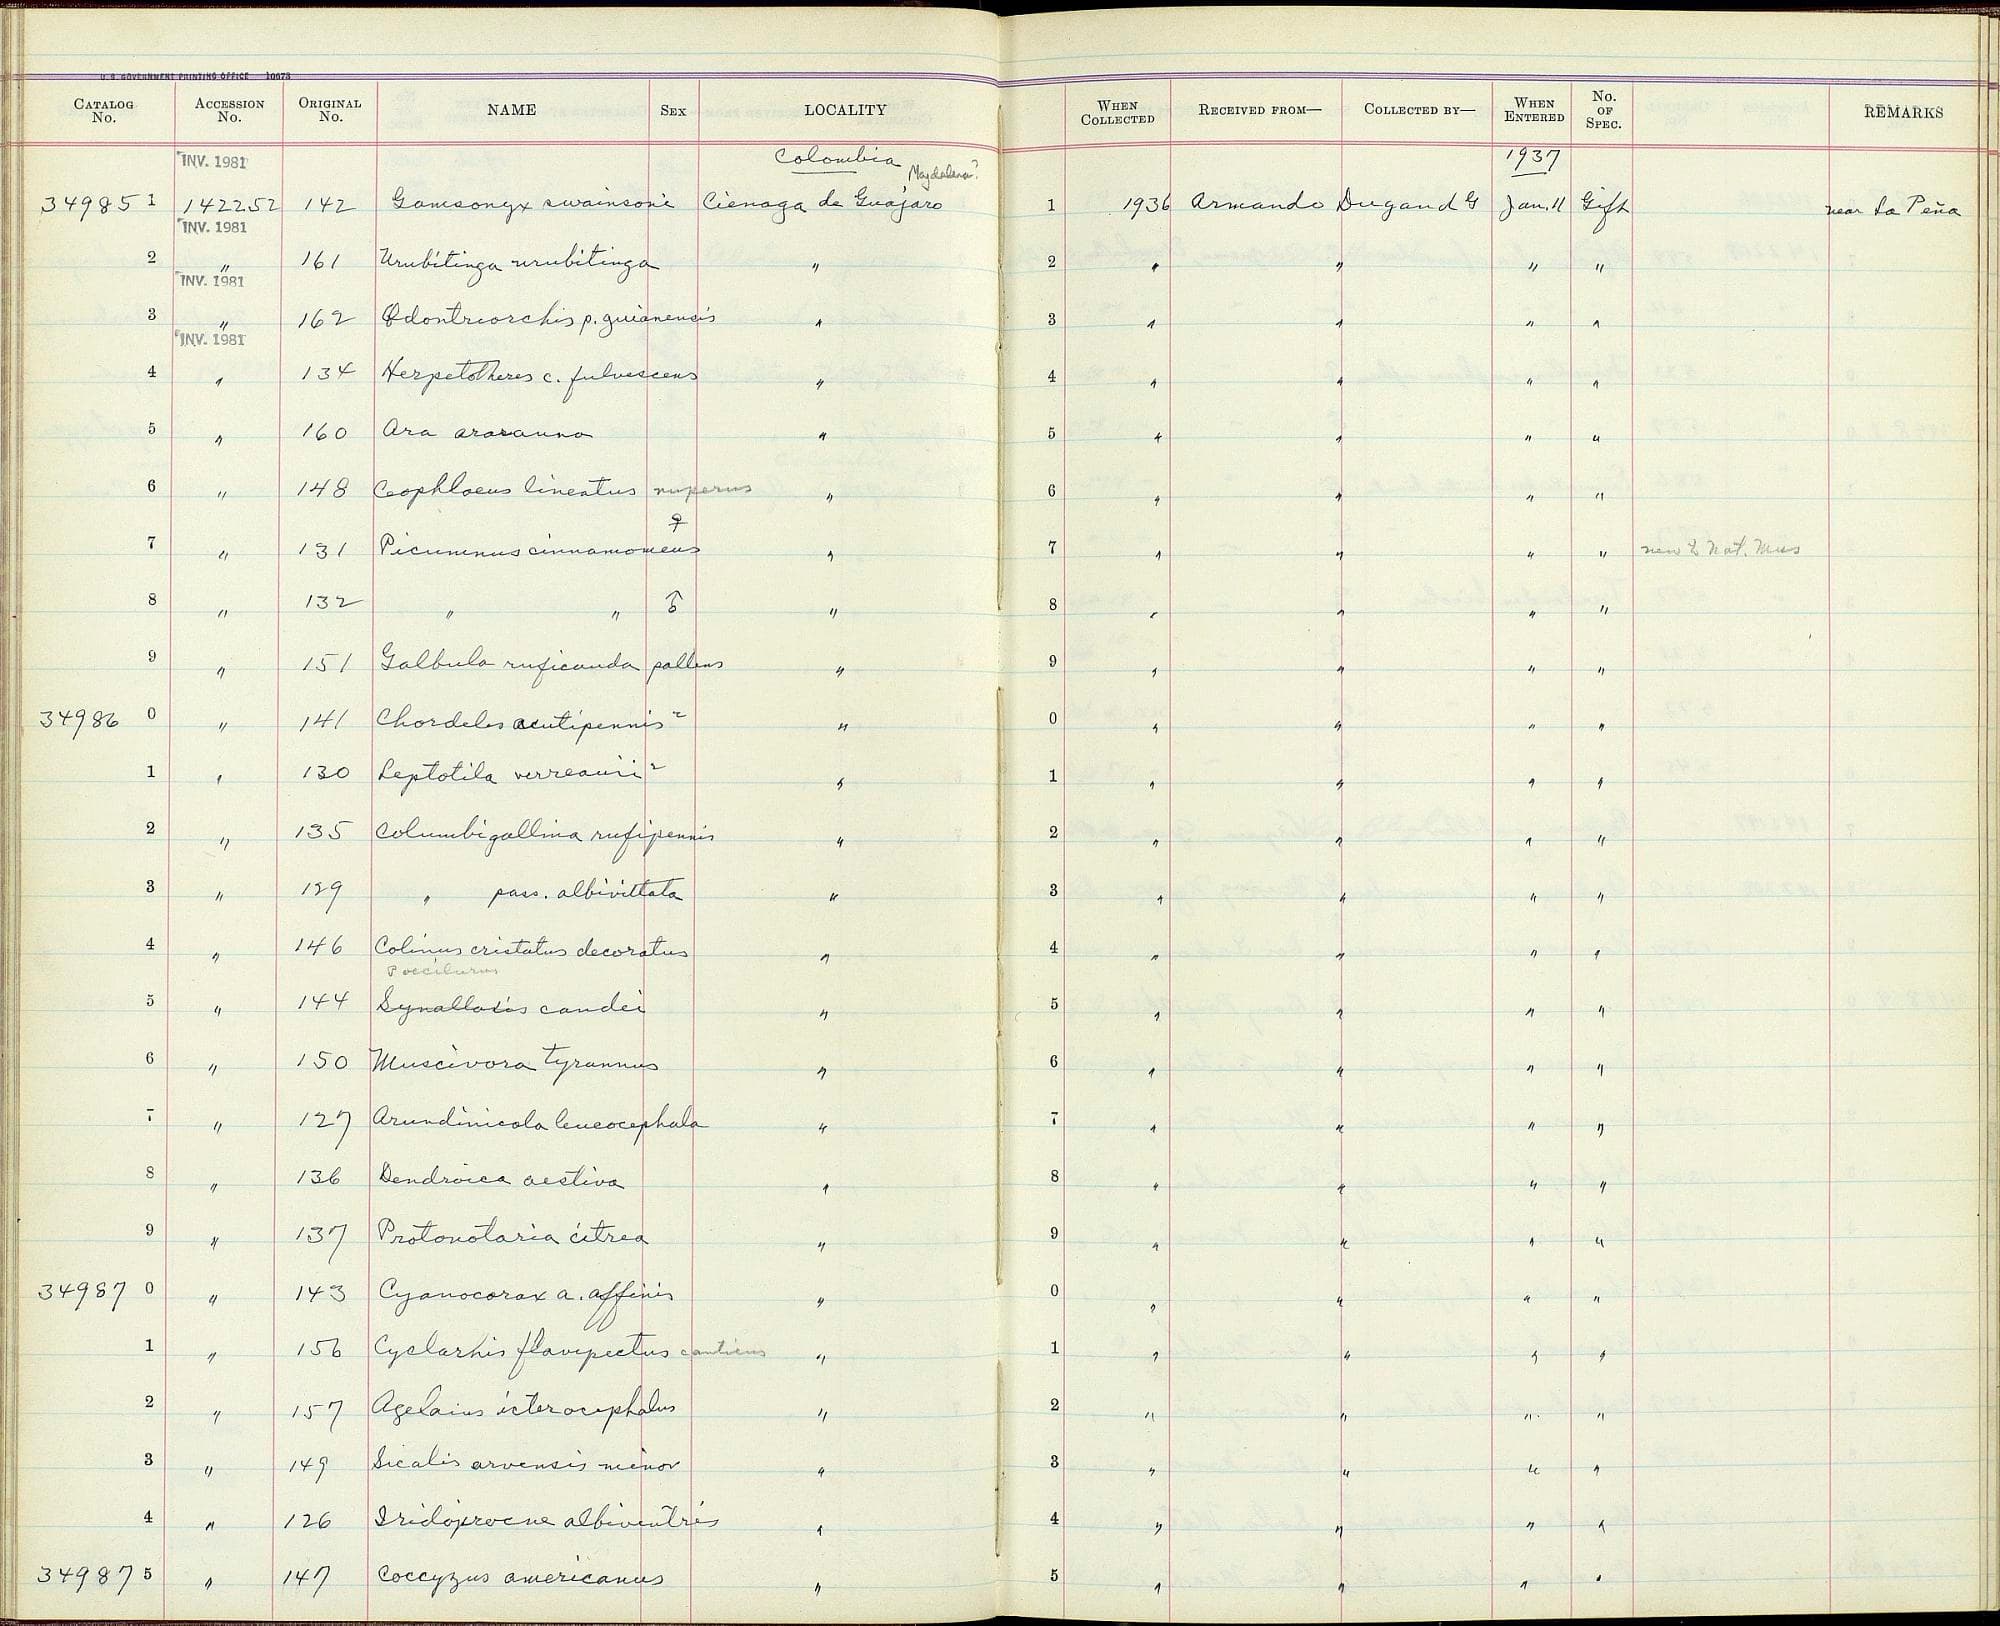 U.S. GOVERNMENT PRINTING OFFICE 10673
CATALOG No. ACCESSION No. ORIGINAL No. NAME SEX LOCALITY WHEN COLLECTED RECEIVED FROM— COLLECTED BY— WHEN ENTERED No. OF SPEC. REMARKS
INV. 1981 Colombia Magdalena? 1937
34985 1 142252 142 Gamsonyx swainsoni Cienaga de Guajaro 1 1936 Armando Dugand G Jan. 11 Gift near La Peña
INV. 1981
2 " 161 Urubitinga urubitinga " 2 " " " "
INV. 1981
3 " 162 Odontriorchis p. guianensis " 3 " " " "
INV. 1981
4 " 134 Herpetotheres c. fulvescens " 4 " " " "
5 " 160 Ara ararauna " 5 " " " "
6 " 148 Ceophloeus lineatus nuperus " 6 " " " "
7 " 131 Picumnus cinnamomeus ♀ " 7 " " " " new to Nat. Mus
8 " 132 " " ♂ " 8 " " " "
9 " 151 Galbula ruficauda pallens " 9 " " " "
34986 0 " 141 Chordeles acutipennis ? " 0 " " " "
1 " 130 Leptotila verreauxi ? " 1 " " " "
2 " 135 Columbigallina rufipennis " 2 " " " "
3 " 129 " pass. albivittata " 3 " " " "
4 " 146 Colinus cristatus decoratus " 4 " " " "
Poecilurus
5 " 144 Synallaxis candei " 5 " " " "
6 " 150 Muscivora tyrannus " 6 " " " "
7 " 127 Arundinicola leucocephala " 7 " " " "
8 " 136 Dendroica aestiva " 8 " " " "
9 " 137 Protonotaria citrea " 9 " " " "
34987 0 " 143 Cyanocorax a. affinis " 0 " " " "
1 " 156 Cyclarhis flavipectus canticus " 1 " " " "
2 " 157 Agelaius icterocephalus " 2 " " " "
3 " 149 Sicalis arvensis minor " 3 " " " "
4 " 126 Iridoprocne albiventris " 4 " " " "
34987 5 " 147 Coccyzus americanus " 5 " " " "